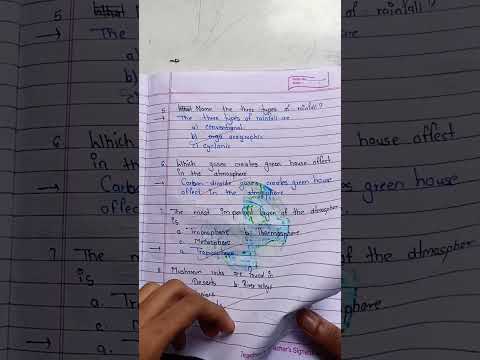 5 Name the three types of rainfall?
→ The three types of rainfall are
a) conventional
b) orographic
c) cyclonic
6. Which gases creates green house affect
in the atmosphere
→ Carbon dioxide gases creates green house
affect in the atmosphere
7. The most important layer of the atmosphere
is
a. Troposphere b. Thermosphere
c. Mesosphere
→ a. Troposphere
8. Mushroom rocks are found in
Deserts b. River
Teacher's Sign